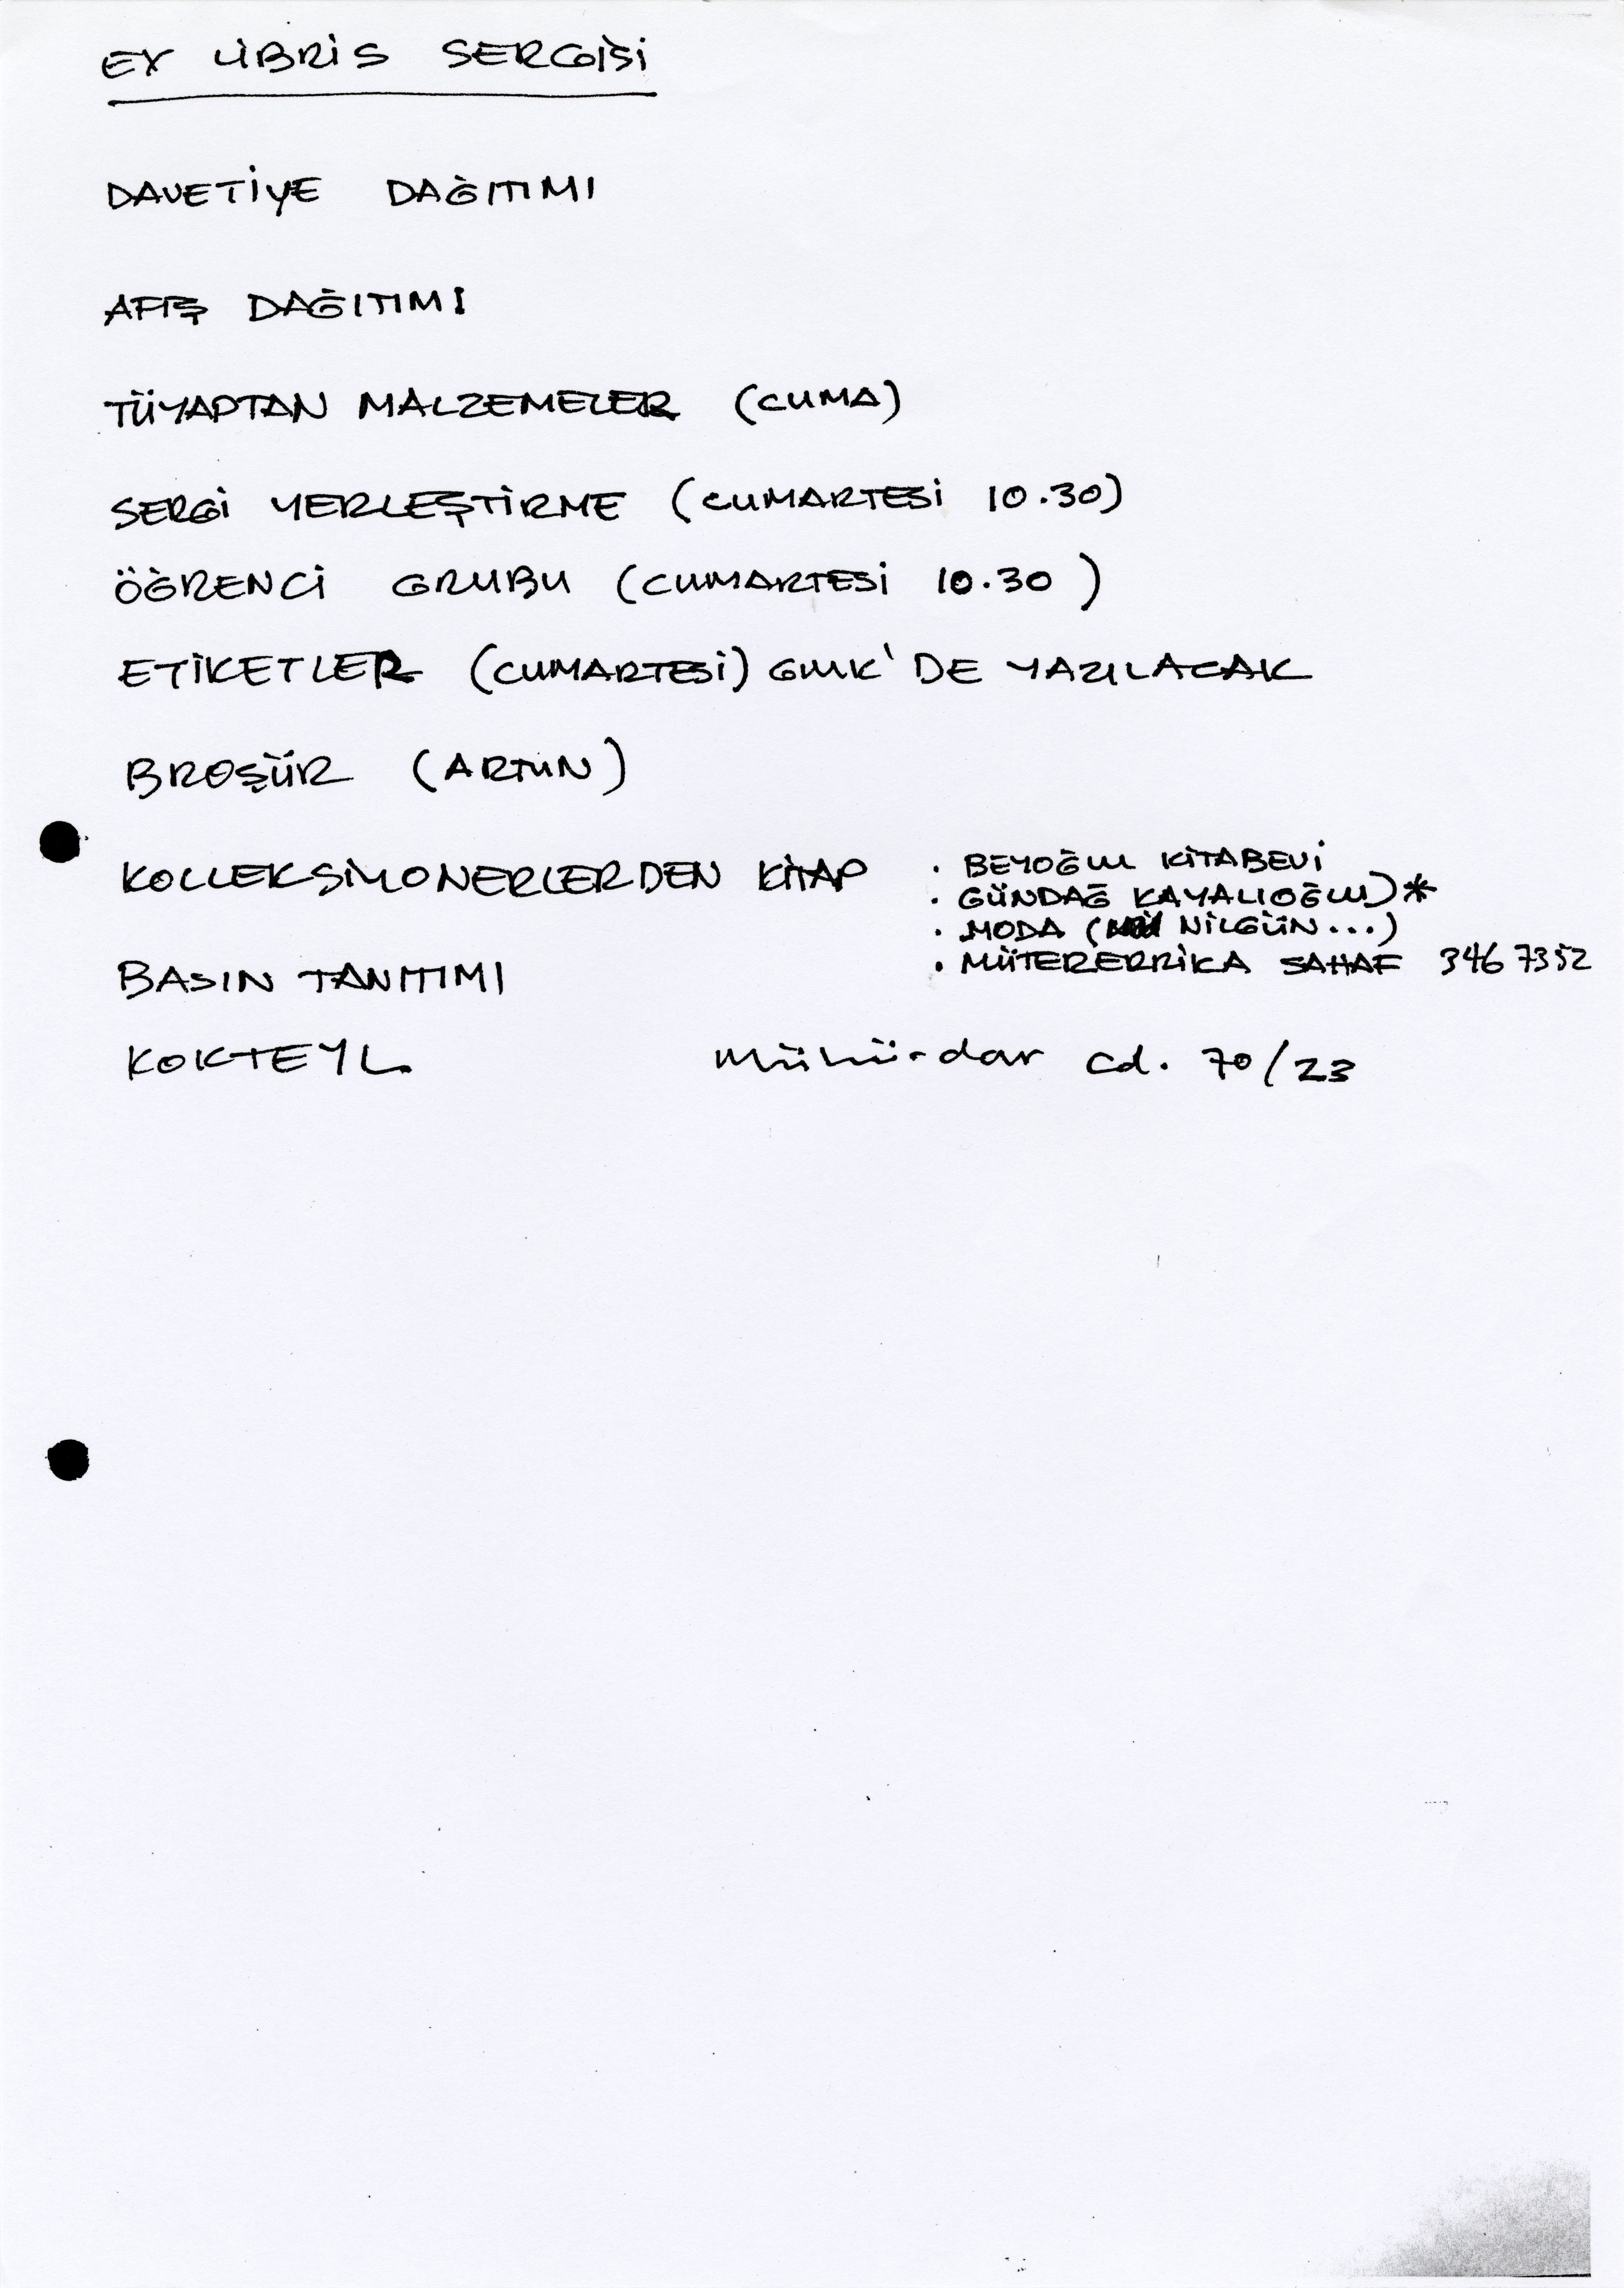 EX LİBRİS SERGİSİ
DAVETİYE DAĞITIMI
AFİŞ DAĞITIMI
TÜYAPTAN MALZEMELER (CUMA)
SERGİ YERLEŞTİRME (CUMARTESİ 10.30)
ÖĞRENCİ GRUBU (CUMARTESİ 10.30)
ETİKETLER (CUMARTESİ) GMK'DE YAZILACAK
BROŞÜR (ARTUN)
KOLLEKSİYONERLERDEN KİTAP
. BEYOĞLU KİTABEVİ
. GÜNDAĞ KAYALIOĞLU)*
. MODA ( NİLGÜN...)
. MÜTERERRİKA SAHAF 346 7352
BASIN TANITIMI
KOKTEYL
Mühürdar Cd. 70/23